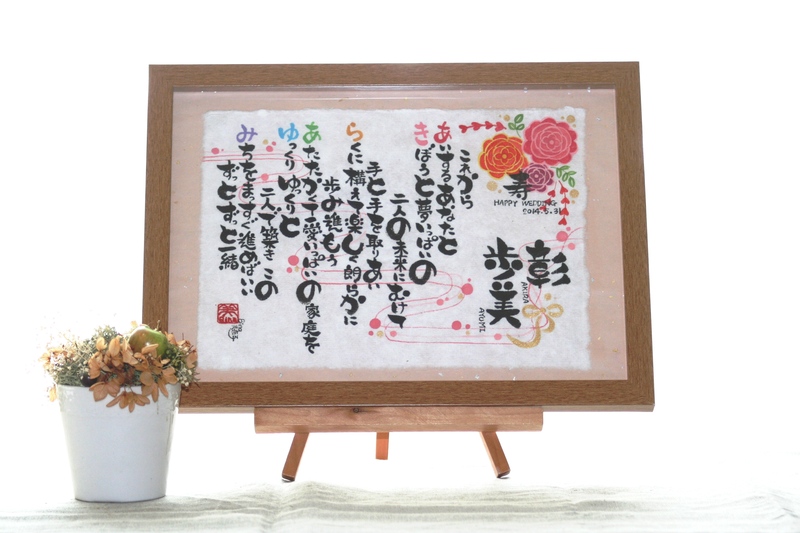 寿
HAPPY WEDDING
2014.5.31
彰
AKIRA
歩美
AYUMI
これから
あいするあなたと
きぼうと夢いっぱいの
二人の未来にむけて
手と手を取りあい
らくに構えて楽しく朗らかに
歩み進もう
あたたかくて愛いっぱいの家庭を
ゆっくりゆっくりと
二人で築きこの
みちをまっすぐ進めばいい
ずっとずっと一緒